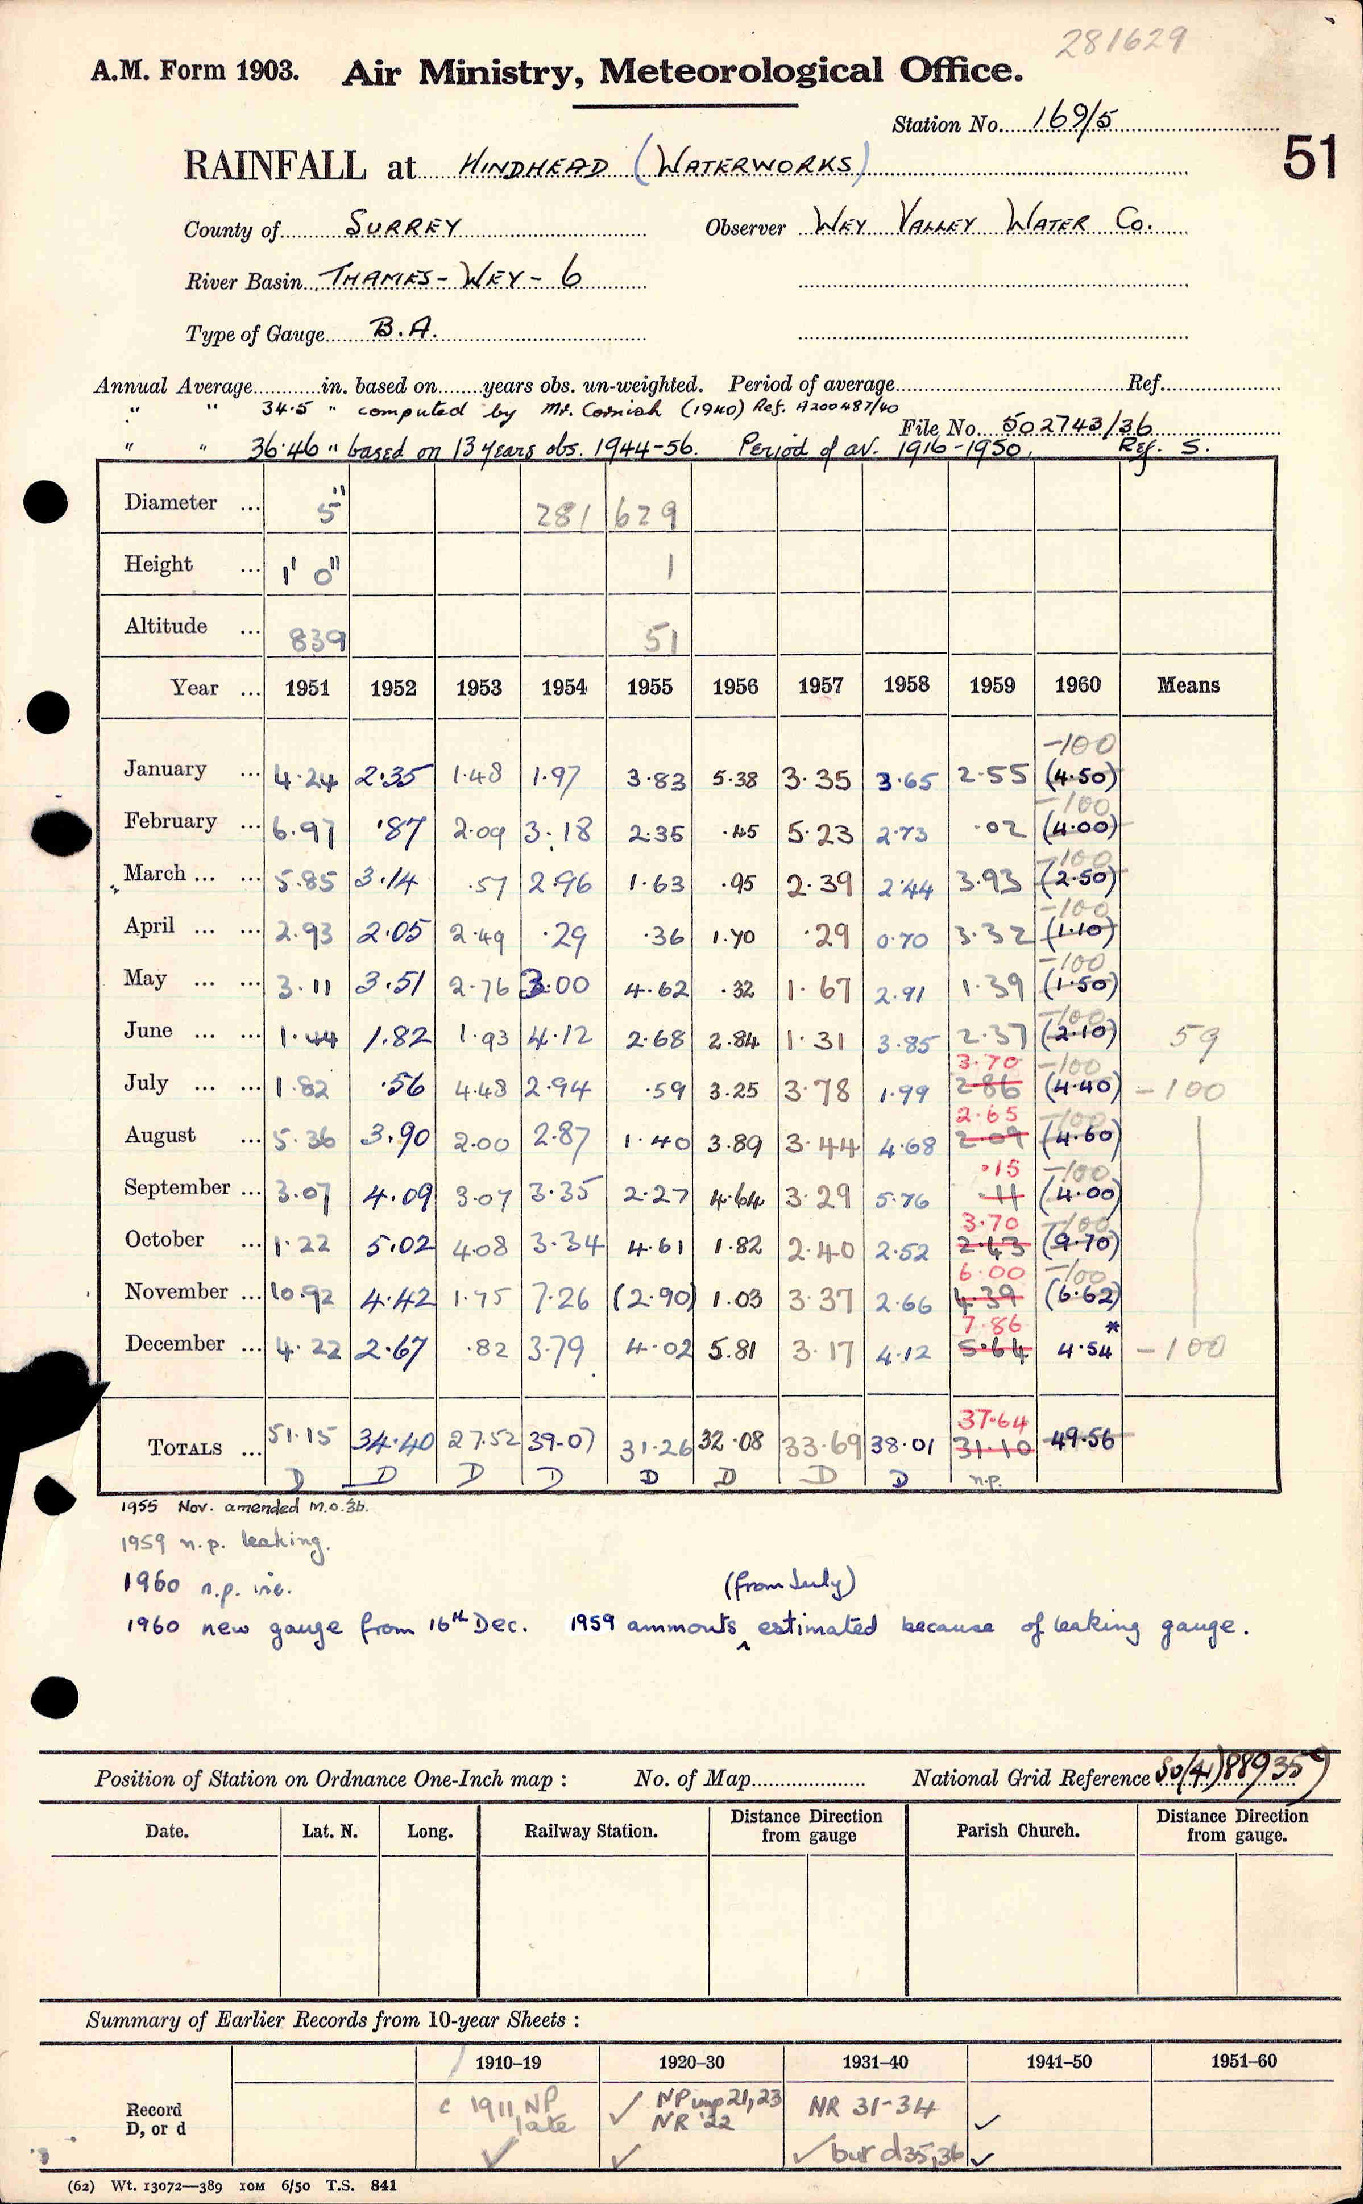 281629
A.M. Form 1903. Air Ministry, Meteorological Office.
Station No. 169/5
51
RAINFALL at HINDHEAD (WATERWORKS)
County of SURREY Observer WEY VALLEY WATER Co.
River Basin THAMES - WEY - 6
Type of Gauge B.A.
Annual Average in. based on years obs. un-weighted. Period of average Ref.
" " 34.5 " computed by Mr. Cornish (1940) Ref. A200487/40
File No. 502743/36
" " 36.46 " based on 13 years obs. 1944-56. Period of av. 1916-1950. Ref. S.
Diameter ... 5" 281 629
Height ... 1' 0" 1
Altitude ... 839 51
Year ... 1951 1952 1953 1954 1955 1956 1957 1958 1959 1960 Means
-100
January ... 4.24 2.35 1.48 1.97 3.83 5.38 3.35 3.65 2.55 (4.50)
-100
February ... 6.97 .87 2.09 3.18 2.35 .45 5.23 2.73 .02 (4.00)
-100
March ... ... 5.85 3.14 .57 2.96 1.63 .95 2.39 2.44 3.93 (2.50)
-100
April ... ... 2.93 2.05 2.49 .29 .36 1.70 .29 0.70 3.32 (1.10)
-100
May ... ... 3.11 3.51 2.76 3.00 4.62 .32 1.67 2.91 1.39 (1.50)
-100
June ... ... 1.44 1.82 1.93 4.12 2.68 2.84 1.31 3.85 2.37 (2.10) 59
3.70 -100
July ... ... 1.82 .56 4.48 2.94 .59 3.25 3.78 1.99 2.86 (4.40) -100
2.65 -100
August ... 5.36 3.90 2.00 2.87 1.40 3.89 3.44 4.68 2.09 (4.60)
.15 -100
September ... 3.07 4.09 3.07 3.35 2.27 4.64 3.29 5.76 .11 (4.00)
3.70 -100
October ... 1.22 5.02 4.08 3.34 4.61 1.82 2.40 2.52 2.43 (9.70)
6.00 -100
November ... 10.92 4.42 1.75 7.26 (2.90) 1.03 3.37 2.66 4.39 (6.62)
7.86 *
December ... 4.22 2.67 .82 3.79 4.02 5.81 3.17 4.12 5.64 4.54 -100
37.64
TOTALS ... 51.15 34.40 27.52 39.07 31.26 32.08 33.69 38.01 31.10 49.56
D D D D D D D D n.p.
1955 Nov. amended M.O.3b.
1959 n.p. leaking.
1960 n.p. inc.
(from July)
1960 new gauge from 16th Dec. 1959 ammouts ^ estimated because of leaking gauge.
Position of Station on Ordnance One-Inch map : No. of Map National Grid Reference SU(41)889359
Date. Lat. N. Long. Railway Station. Distance from gauge Direction Parish Church. Distance from gauge. Direction
Summary of Earlier Records from 10-year Sheets :
1910-19 1920-30 1931-40 1941-50 1951-60
Record D, or d
c 1911 NP late ✓ NP inp 21,23 NR '22 NR 31-34 ✓
✓ ✓ ✓ but d35,36 ✓
(62) Wt. 13072—389 10M 6/50 T.S. 841